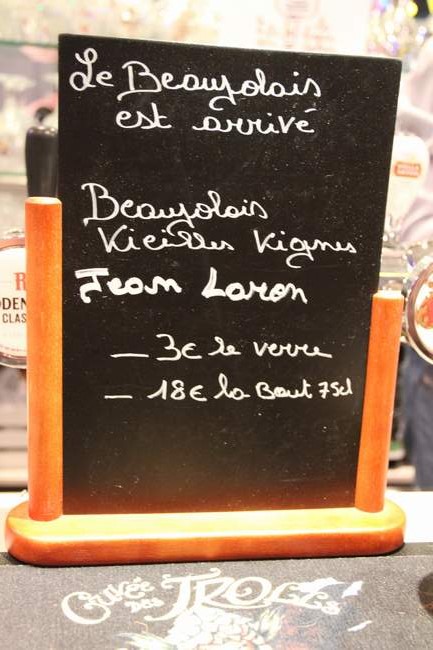 Le Beaujolais
est arrivé
Beaujolais
Vieilles Vignes
Jean Loron
— 3€ le verre
— 18€ la Bout 75cl
CLAS
Cuvée des TROLLS